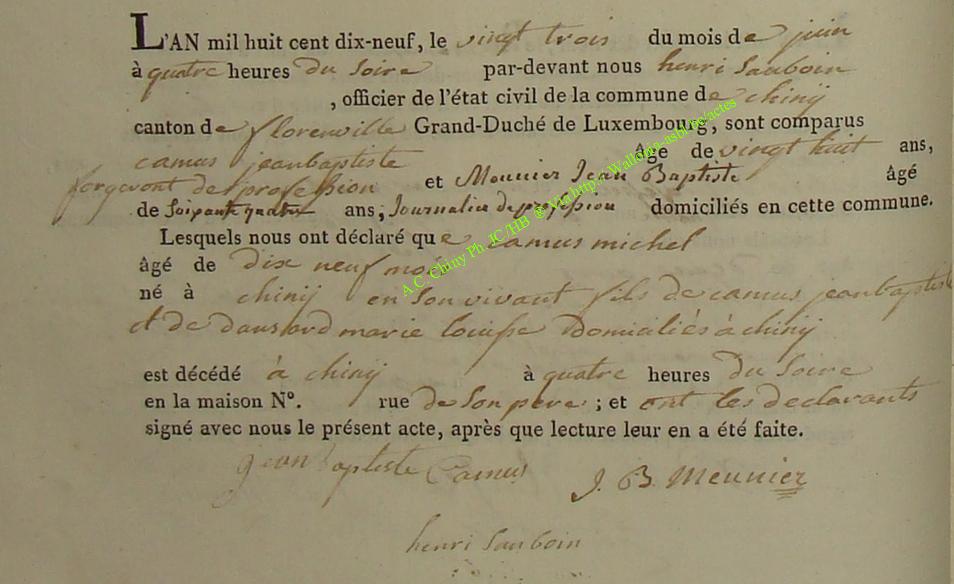 L'AN mil huit cent dix-neuf, le vingt trois du mois de juin
à quatre heures du Soire par-devant nous henri Sauboin
, officier de l'état civil de la commune de chinij
canton de florenville Grand-Duché de Luxembourg, sont comparus
camus jeanbaptiste âge de vingt huit ans,
forgeront de profession et Meunier Jean Baptiste âgé
de Soixante quatre ans, Journalier de profession domiciliés en cette commune.
Lesquels nous ont déclaré que camus michel
âgé de dix neuf mois
né à chinij en Son vivant fils de camus jeanbaptiste
et de dansard marie louise domicliés à chinij
est décédé à chinij à quatre heures du Soire
en la maison N°. rue de Son pere ; et ont les declarants
signé avec nous le présent acte, après que lecture leur en a été faite.
jean baptiste Camus
J. B. Meunier
henri Sauboin
A.C. Chiny Ph. JC/HB ® Via http://Wallonia-asbl.be/actes